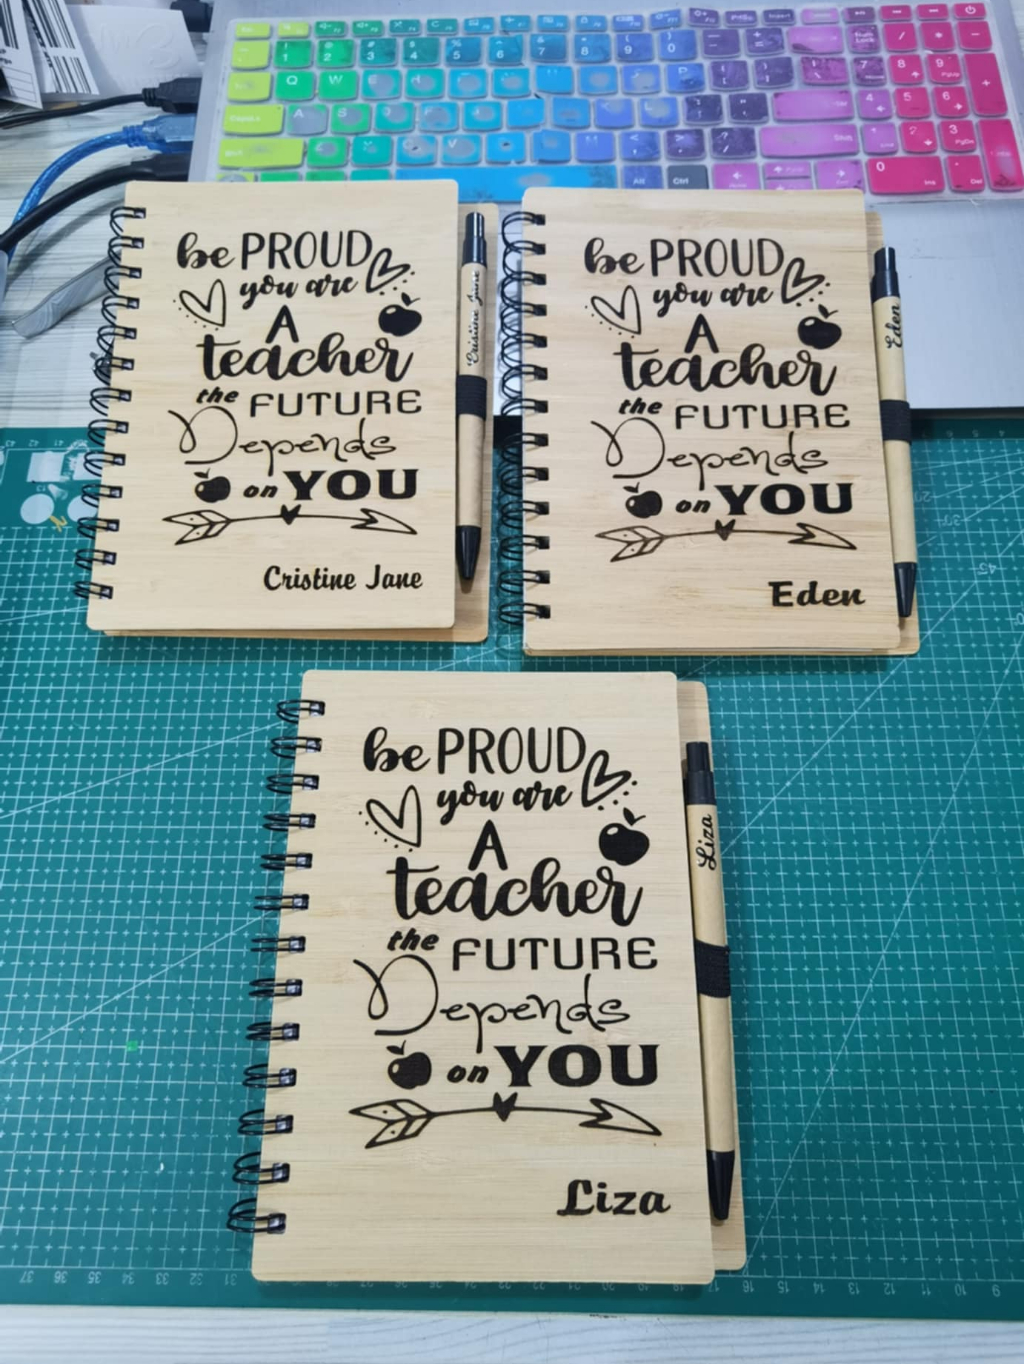 be PROUD
you are
A
teacher
the FUTURE
Depends
on YOU
Cristine Jane
Cristine Jane
be PROUD
you are
A
teacher
the FUTURE
Depends
on YOU
Eden
Eden
be PROUD
you are
A
teacher
the FUTURE
Depends
on YOU
Liza
Liza